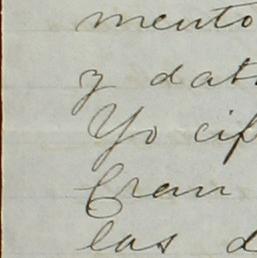 mento
y dat
Yo cif
Eran
las d